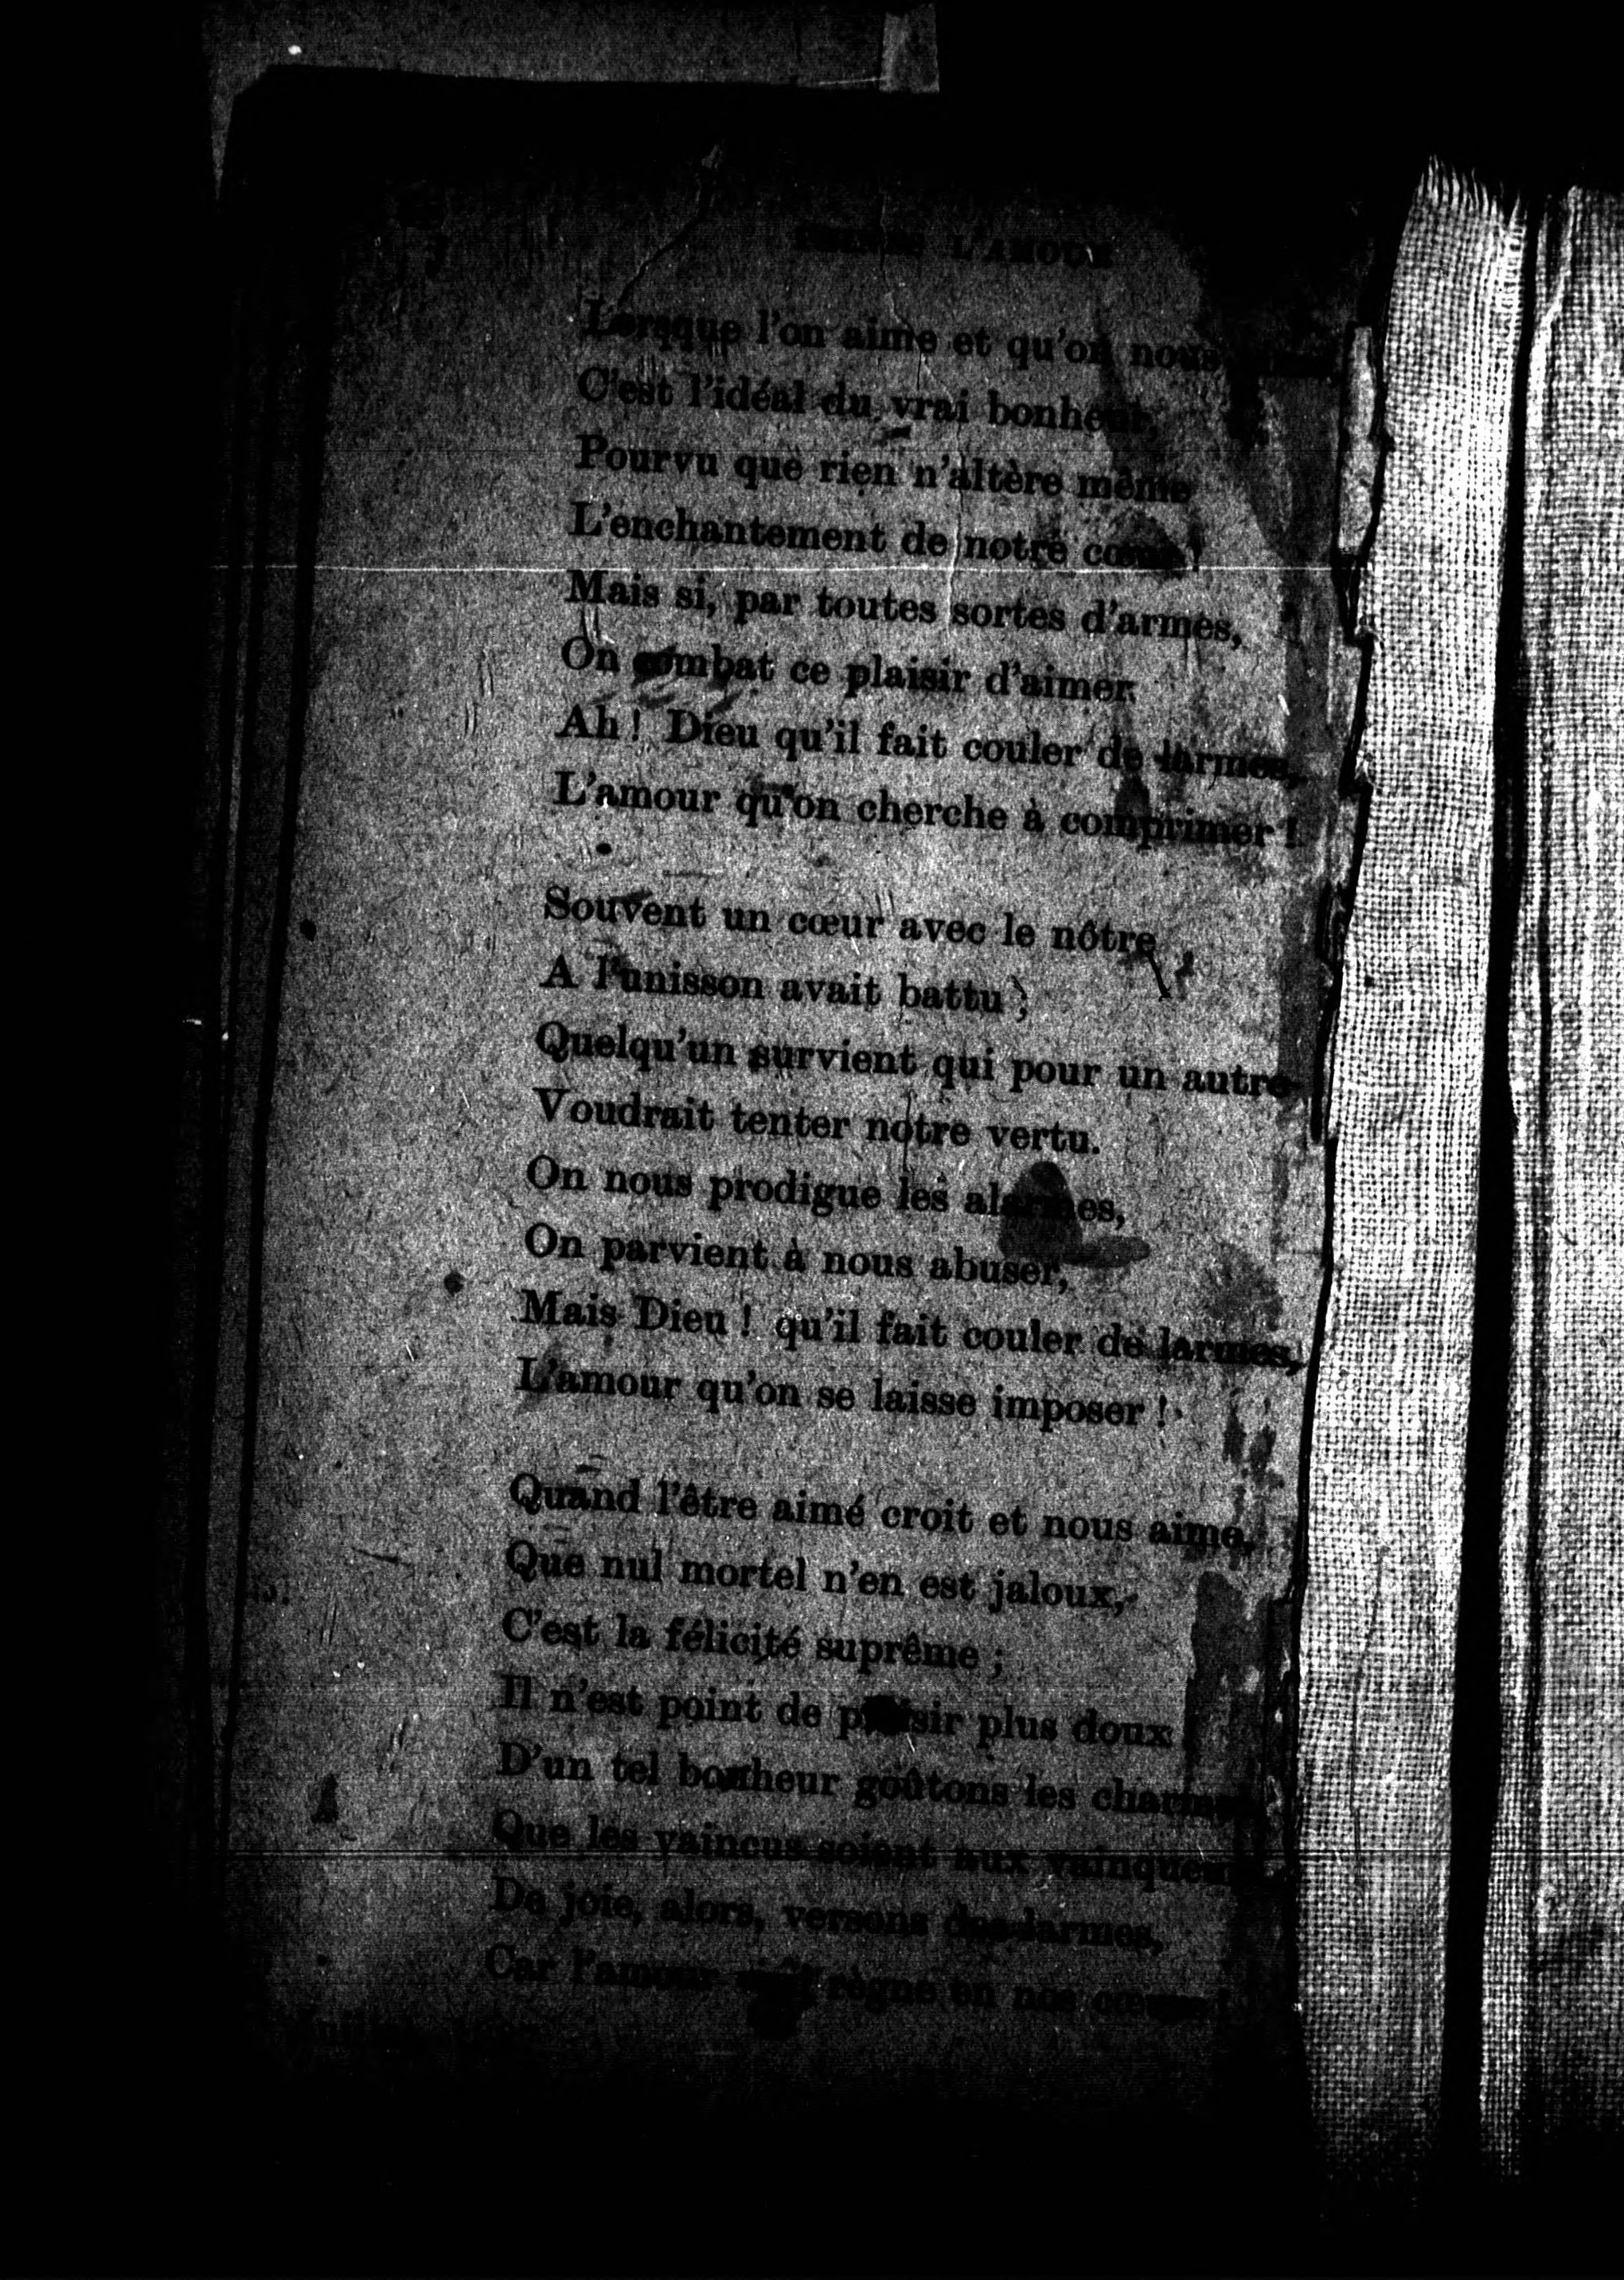 L'AMOUR
Lorsque l'on aime et qu'on nous
C'est l'idéal du vrai bonheur,
Pourvu que rien n'altère même
L'enchantement de notre cœur !
Mais si, par toutes sortes d'armes,
On combat ce plaisir d'aimer.
Ah ! Dieu qu'il fait couler de larmes,
L'amour qu'on cherche à comprimer !
Souvent un cœur avec le nôtre
A l'unisson avait battu ;
Quelqu'un survient qui pour un autre
Voudrait tenter notre vertu.
On nous prodigue les alarmes,
On parvient à nous abuser,
Mais Dieu ! qu'il fait couler de larmes,
L'amour qu'on se laisse imposer !
Quand l'être aimé croit et nous aime,
Que nul mortel n'en est jaloux,
C'est la félicité suprême ;
Il n'est point de plaisir plus doux
D'un tel bonheur goûtons les charmes
Que les vaincus soient aux vainqueurs
De joie, alors, versons des larmes,
Car l'amour règne en nos cœurs !